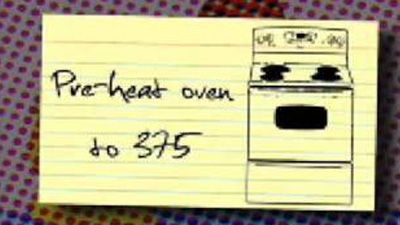 Pre-heat oven
to 375